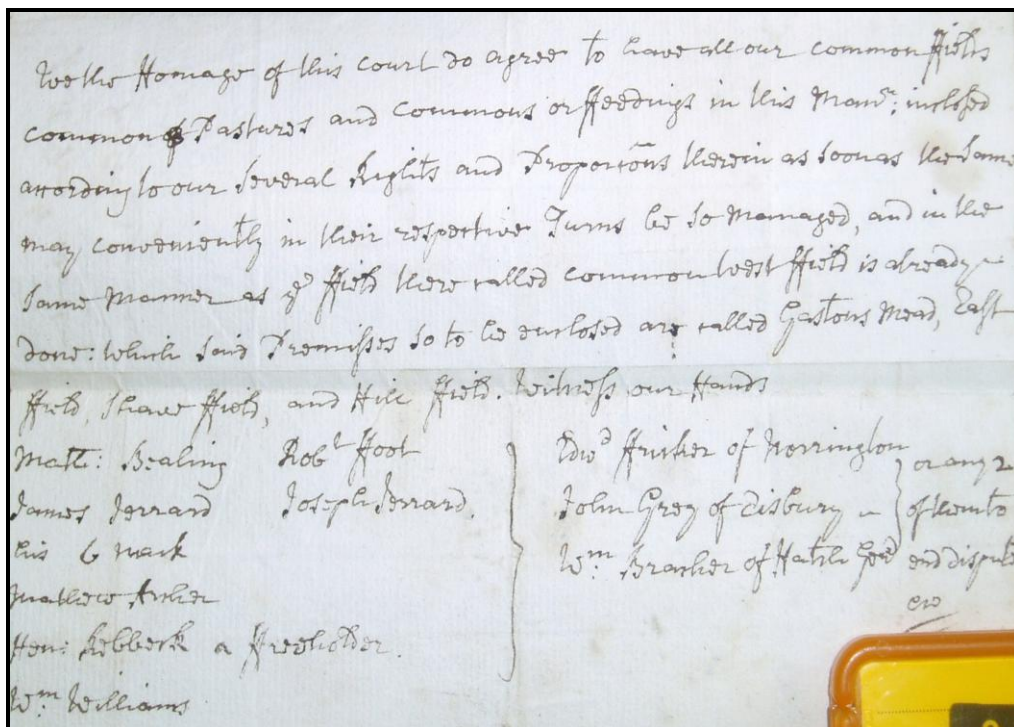 We the Homage of this Court do agree to have all our common ffields
common Pastures and Commons or ffeedings in this Manr: inclosed
according to our Several Rights and Proporcõns therein as soon as the Same
may conveniently in their respective Turns be so Managed, and in the
Same Manner as ye ffield there called common West ffield is already
done: which said Premisses so to be enclosed are called Gastons Mead, East
ffield, Shave ffield, and Hill ffield. Witness our Hands
Matt: Bealing Robt ffoot
James Jerrard Joseph Jerrard
his mark
Mathew
Hen: a ffreeholder.
Wm Williams
Edwd ffricker of Norrington
John Grey of Tisbury
Wm Bracher of Hatch
or any 2
of them to
end dispute